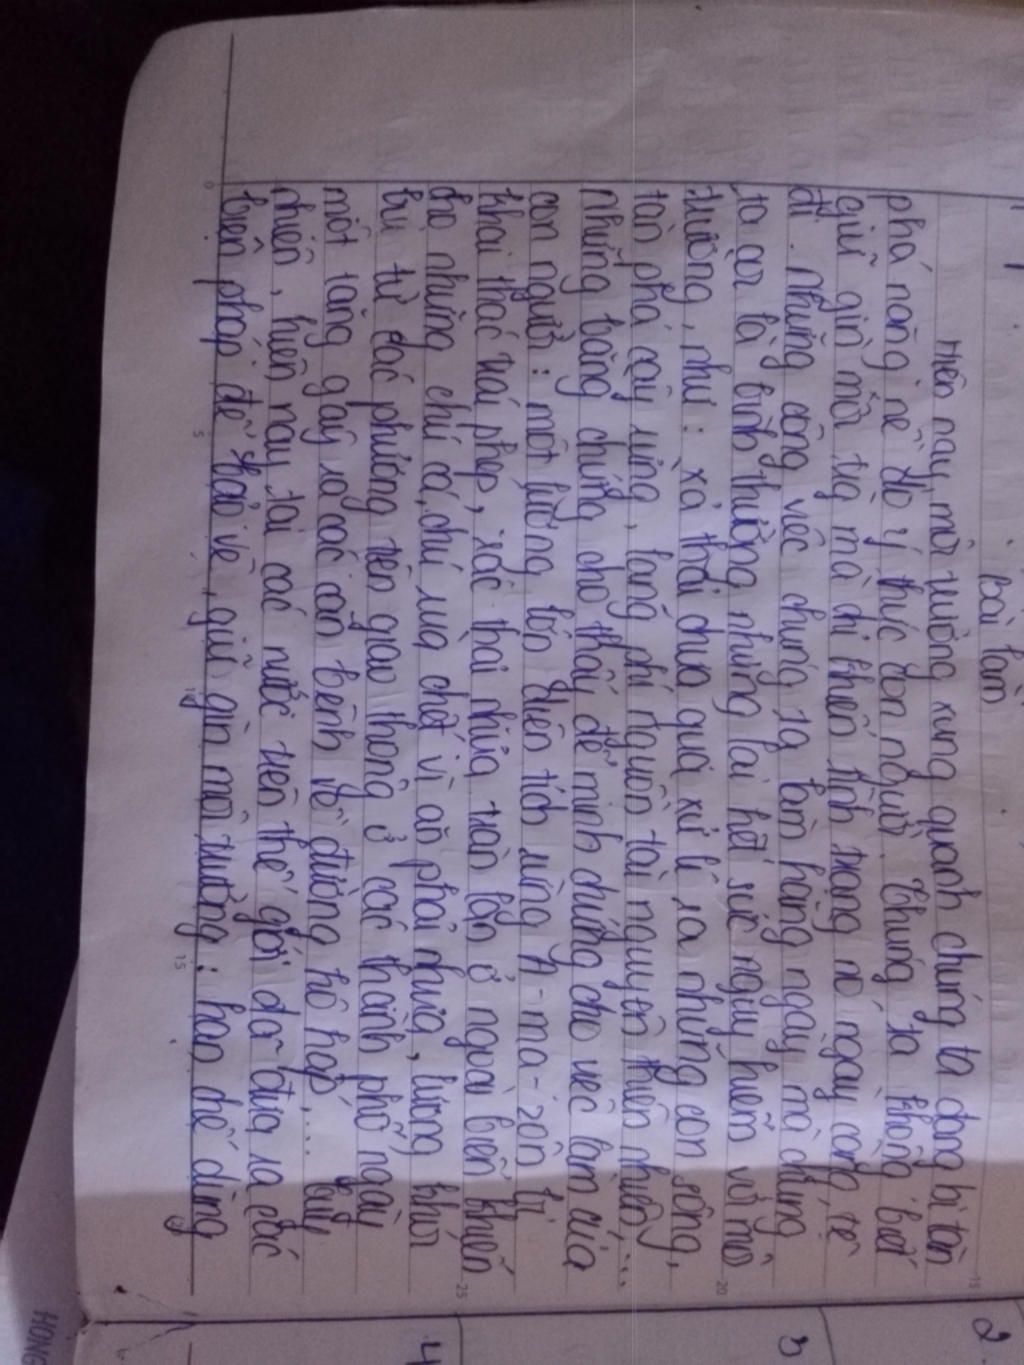 Bài làm
Hiện nay, môi trường xung quanh chúng ta đang bị tàn
phá nặng nề do ý thức con người. Chúng ta không biết
giữ gìn môi trg mà chỉ khiến tình trạng nó ngày càng tệ
đi. Những công việc chúng ta làm hàng ngày mà chúng
ta coi là bình thường nhưng lại hết sức nguy hiểm với môi
trường, như: xả thải chưa qua xử lí ra những con sông,
tàn phá cây rừng, lãng phí nguồn tài nguyên thiên nhiên,...
Những bằng chứng cho thấy để minh chứng cho việc làm của
con người: một lượng lớn diện tích rừng A-ma-zôn bị
khai thác trái phép, rác thải nhựa tràn lan ở ngoài biển khiến
cho những chú cá, chú rùa chết vì ăn phải nhựa, lượng khói
bụi từ các phương tiện giao thông ở các thành phố ngày
một tăng gây ra các căn bệnh về đường hô hấp,... Tuy
nhiên, hiện nay, tại các nước trên thế giới đã đưa ra các
biện pháp để bảo vệ, giữ gìn môi trường: hạn chế dùng
0
5
10
15
20
25
15
2
3
4
HONG